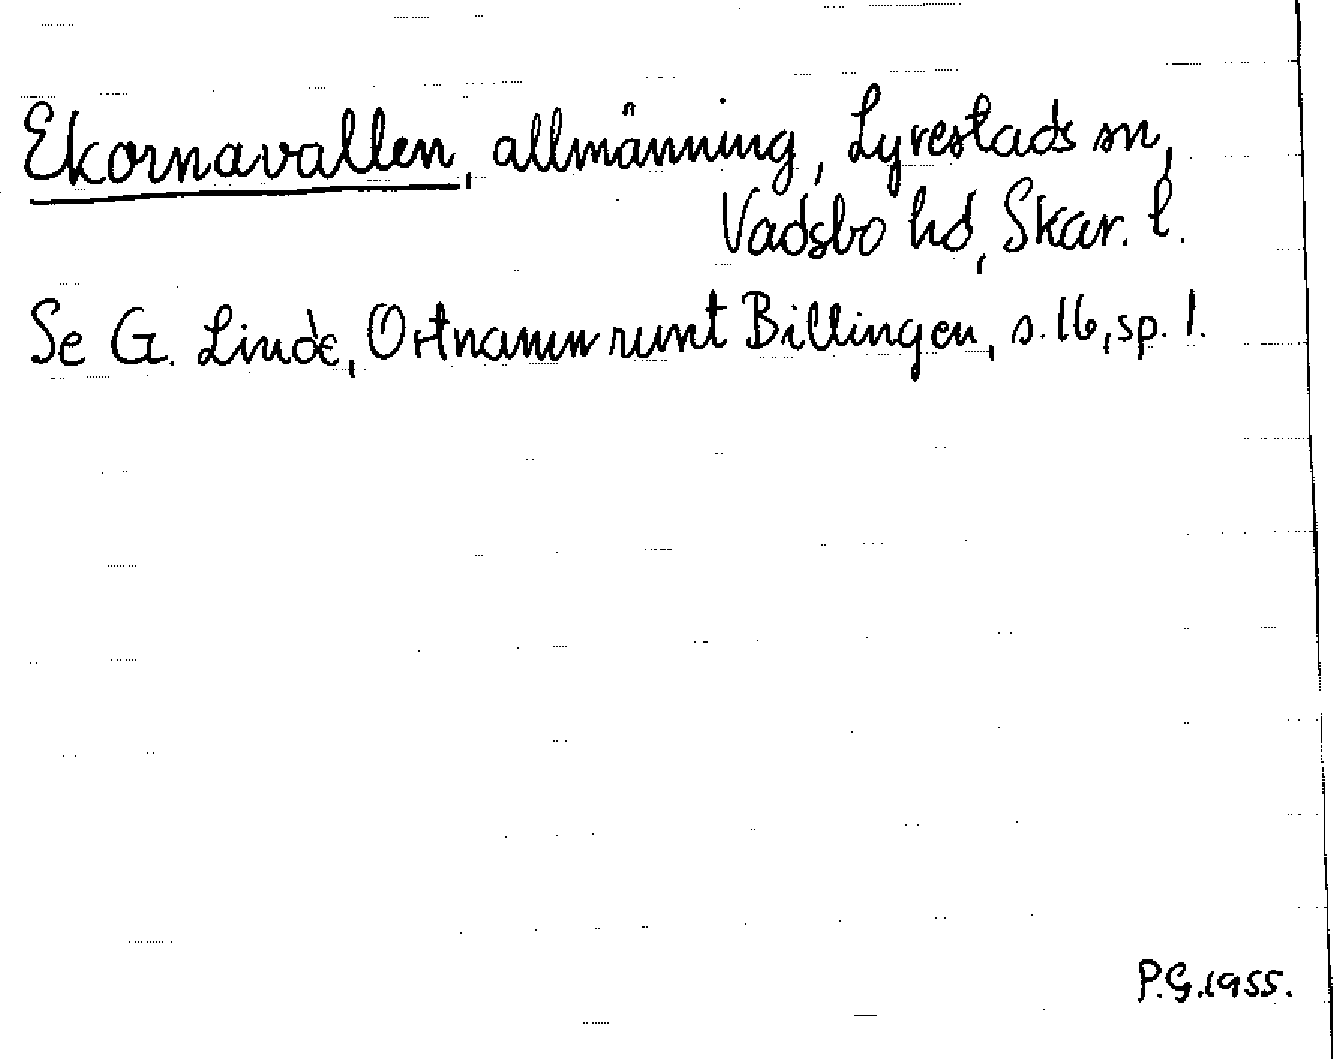 Ekornavallen, allmänning, Lyrestads sn,
Vadsbo hd, Skar. l.
Se G. Linde, Ortnamn runt Billingen, s. 16, sp. 1.
P.G. 1955.